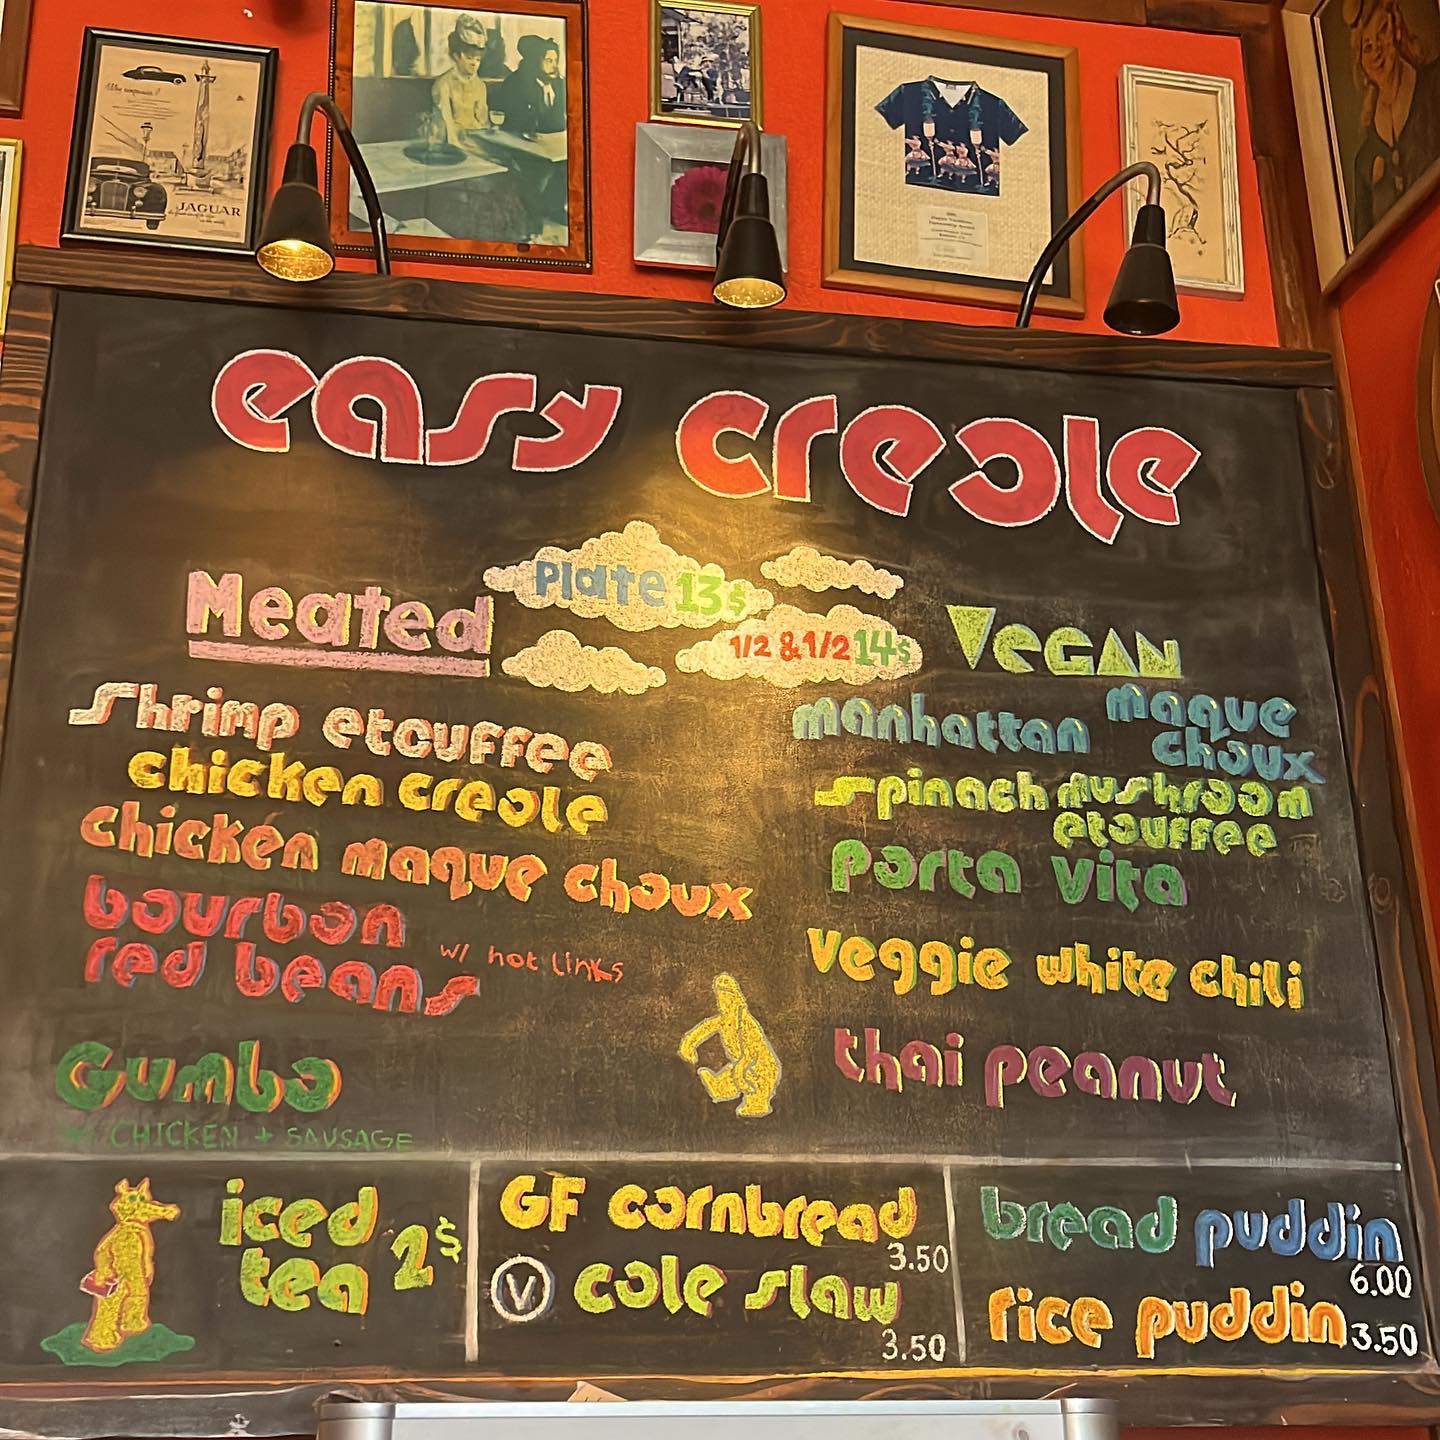 JAGUAR
easy creole
Plate 13$
1/2 & 1/2 14$
Meated
shrimp etouffee
chicken creole
chicken maque choux
bourbon
red beans w/ hot links
Gumbo
w/ CHICKEN + SAUSAGE
VEGAN
manhattan maque
choux
spinach mushroom
etouffee
porta vita
veggie white chili
thai peanut
iced
tea 2$
GF cornbread
3.50
V cole slaw
3.50
bread puddin
6.00
rice puddin 3.50